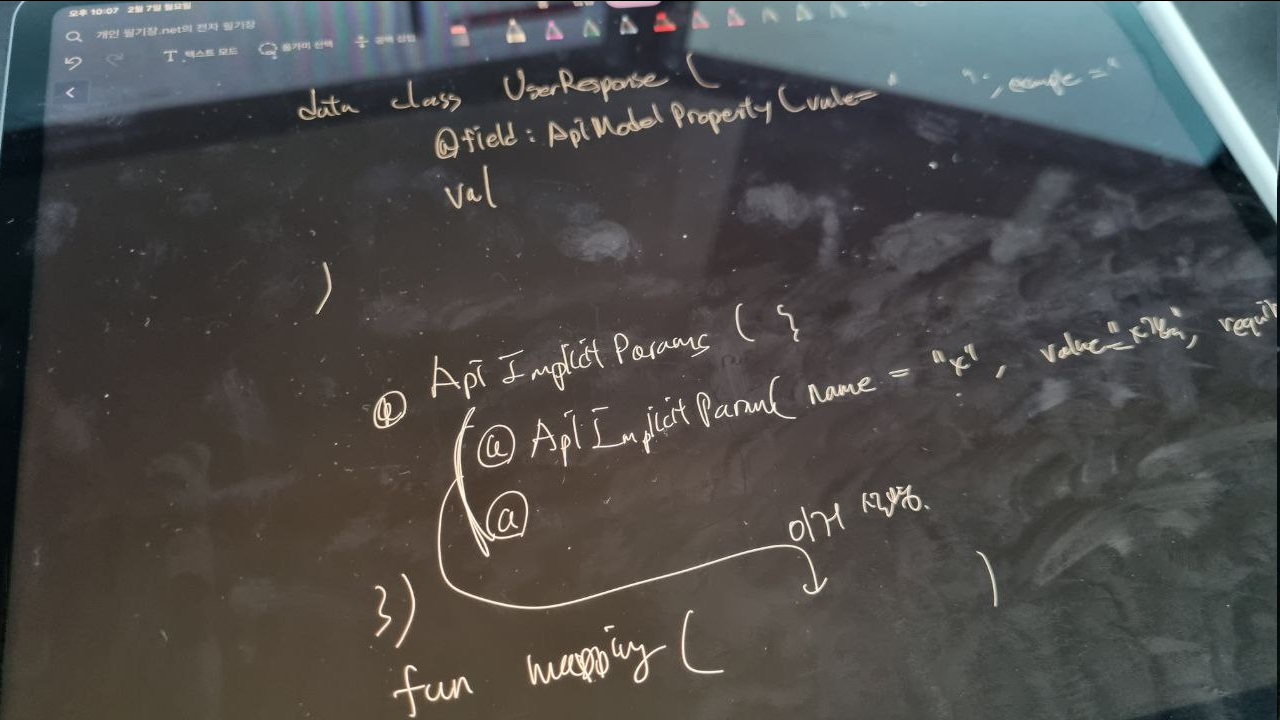 오후 10:07 2월 7일 월요일
개인 필기장.net의 전자 필기장
텍스트 모드 올가미 선택 공백 삽입
data class UserResponse (
@field : ApiModelProperty (value= " ", example = "
val
)
@ ApiImplicitParams ( {
@ ApiImplicitParam( name = "x", value="x값",
@
이거 설명.
})
fun mapping ( )